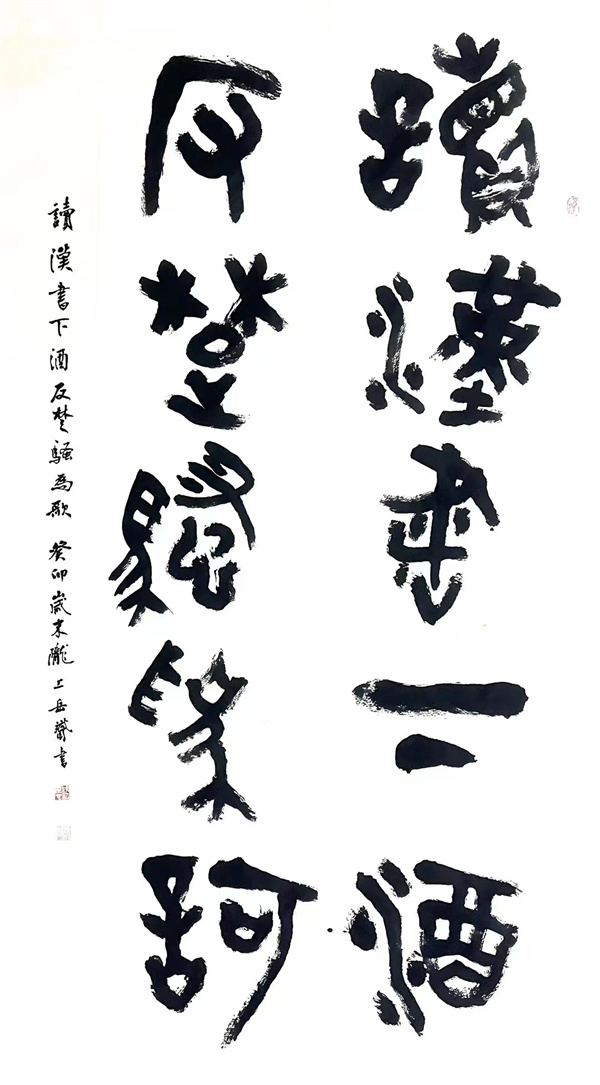 讀漢書下酒
反楚騷為歌
讀漢書下酒反楚騷為歌 癸卯歲末隴上岳